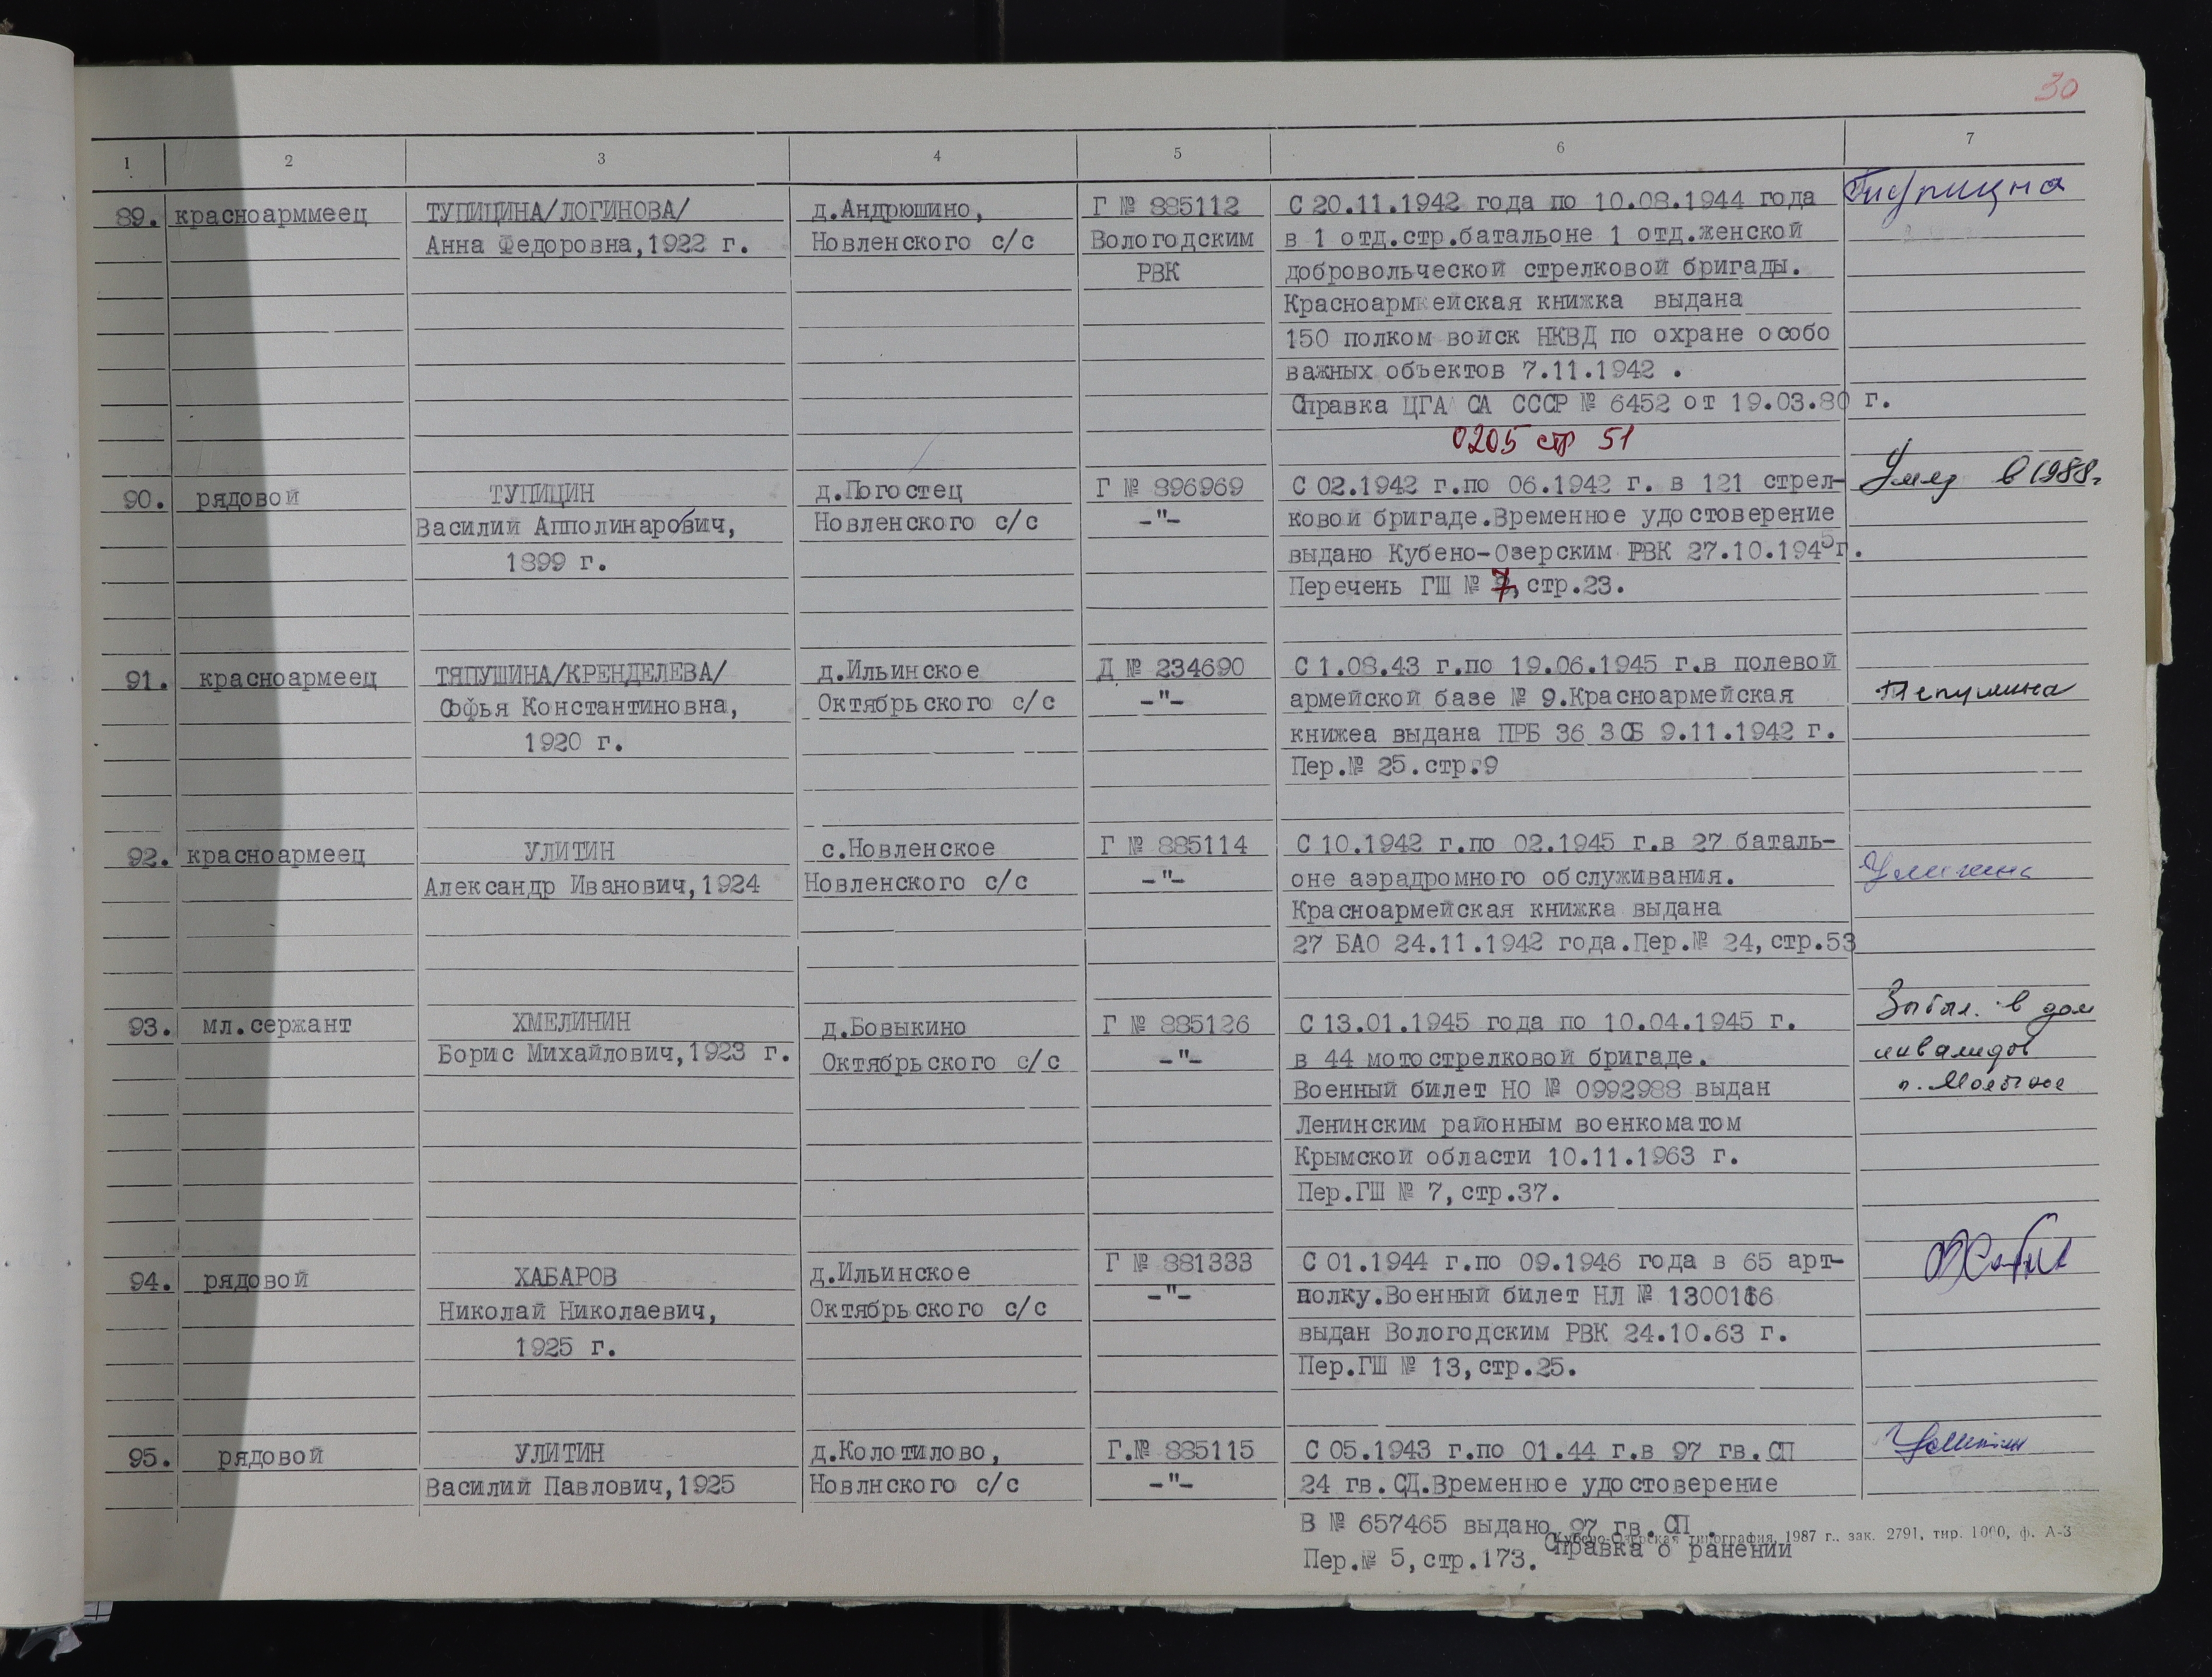 30
1 2 3 4 5 6 7
89. красноарммеец ТУПИЦИНА/ЛОГИНОВА/ д.Андрюшино, Г № 885112 С 20.11.1942 года по 10.08.1944 года Тупицина
Анна Федоровна,1922 г. Новленского с/с Вологодским в 1 отд.стр.батальоне 1 отд.женской
РВК добровольческой стрелковой бригады.
Красноармкейская книжка выдана
150 полком войск НКВД по охране особо
важных объектов 7.11.1942 .
Справка ЦГА СА СССР № 6452 от 19.03.80 г.
0205 стр 51
90. рядовой ТУПИЦИН д.Погостец Г № 896969 С 02.1942 г.по 06.1942 г. в 121 стрел- Умер в 1988г
Василий Апполинарович, Новленского с/с -"- ковой бригаде.Временное удостоверение
1899 г. выдано Кубено-Озерским РВК 27.10.1945г.
Перечень ГШ № 7, стр.23.
91. красноармеец ТЯПУШИНА/КРЕНДЕЛЕВА/ д.Ильинское Д № 234690 С 1.08.43 г.по 19.06.1945 г.в полевой
Софья Константиновна, Октябрьского с/с -"- армейской базе № 9.Красноармейская Тяпушина
1920 г. книжеа выдана ПРБ 36 ЗСБ 9.11.1942 г.
Пер.№ 25.стр.9
92. красноармеец УЛИТИН с.Новленское Г № 885114 С 10.1942 г.по 02.1945 г.в 27 баталь-
Александр Иванович,1924 Новленского с/с -"- оне аэрадромного обслуживания. Улитина
Красноармейская книжка выдана
27 БАО 24.11.1942 года.Пер.№ 24,стр.53
93. мл.сержант ХМЕЛИНИН д.Бовыкино Г № 885126 С 13.01.1945 года по 10.04.1945 г. в дом
Борис Михайлович,1923 г. Октябрьского с/с -"- в 44 мотострелковой бригаде. инвалидов
Военный билет НО № 0992988 выдан
Ленинским районным военкоматом
Крымской области 10.11.1963 г.
Пер.ГШ № 7,стр.37.
94. рядовой ХАБАРОВ д.Ильинское Г № 881333 С 01.1944 г.по 09.1946 года в 65 арт-
Николай Николаевич, Октябрьского с/с -"- полку.Военный билет НЛ № 1300116
1925 г. выдан Вологодским РВК 24.10.63 г.
Пер.ГШ № 13,стр.25.
95. рядовой УЛИТИН д.Колотилово, Г.№ 885115 С 05.1943 г.по 01.44 г.в 97 гв.СП
Василий Павлович,1925 Новлнского с/с -"- 24 гв.СД.Временное удостоверение
В № 657465 выдано 97 гв.СП .
Кубено-Озерская типография, 1987 г., зак. 2791, тир. 1000, ф. А-3
Пер.№ 5,стр.173. Справка о ранении